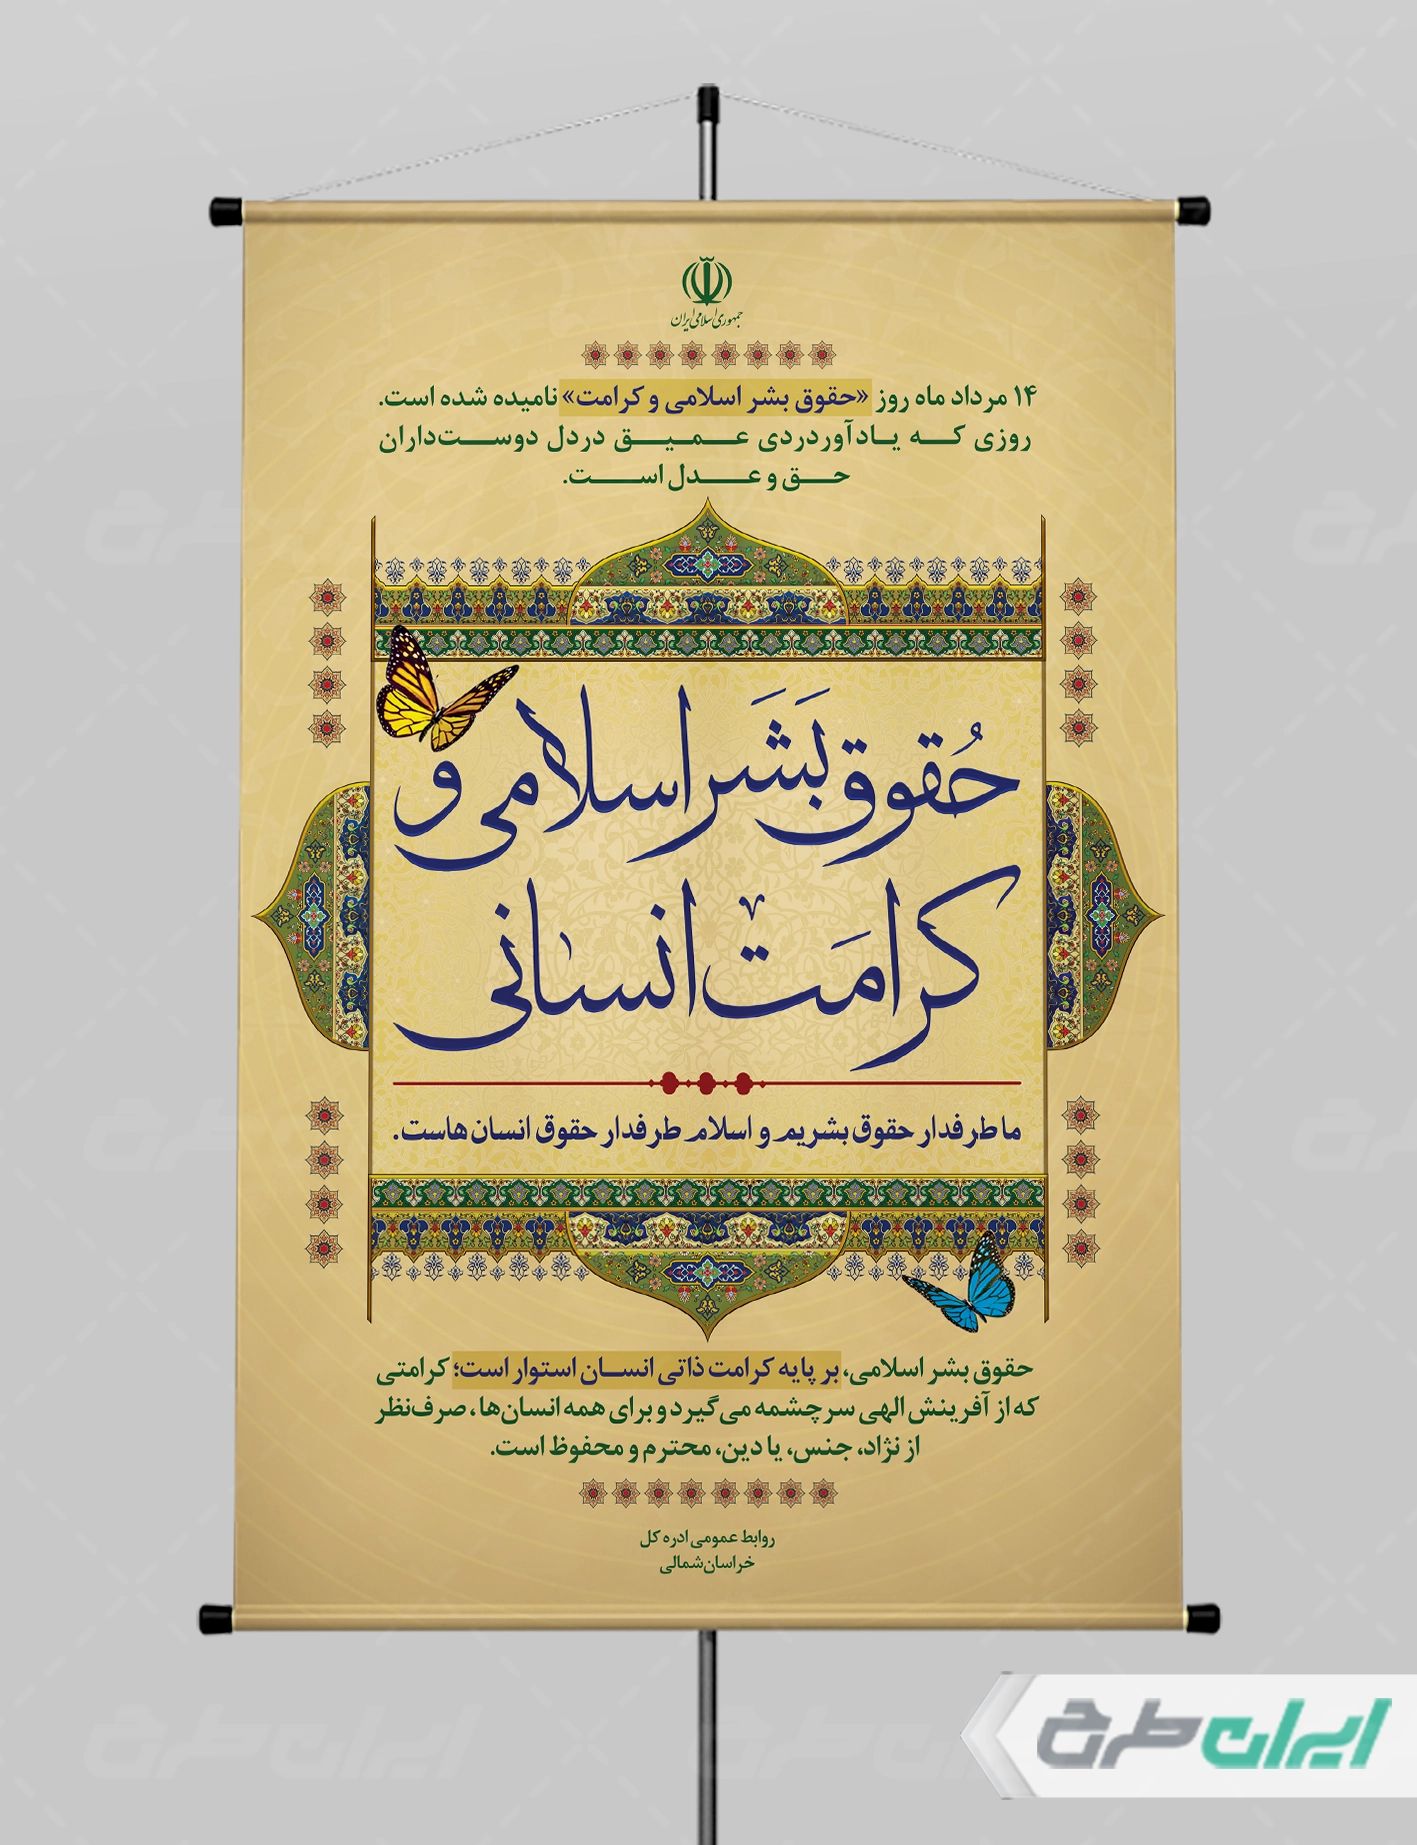 جمهوری اسلامی ایران
۱۴ مرداد ماه روز «حقوق بشر اسلامی و کرامت» نامیده شده است.
روزی که یادآور دردی عمیق در دل دوست‌داران
حق و عدل است.
حُقوق بَشَر اسلامی و
کرامَت انسانی
ما طرفدار حقوق بشریم و اسلام طرفدار حقوق انسان‌هاست.
حقوق بشر اسلامی، بر پایه کرامت ذاتی انسان استوار است؛ کرامتی
که از آفرینش الهی سرچشمه می‌گیرد و برای همه انسان‌ها، صرف‌نظر
از نژاد، جنس، یا دین، محترم و محفوظ است.
روابط عمومی ادره کل
خراسان‌شمالی
ایران طرح